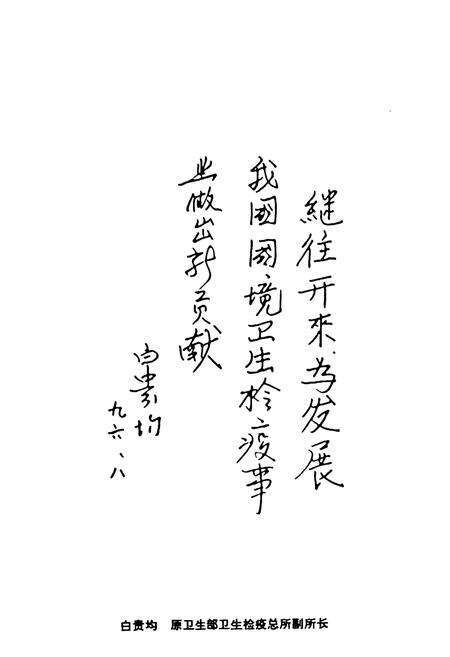 继往开來为发展
我國國境卫生检疫事
业做出新贡献
白贵均
九六、八
白贵均 原卫生部卫生检疫总所副所长